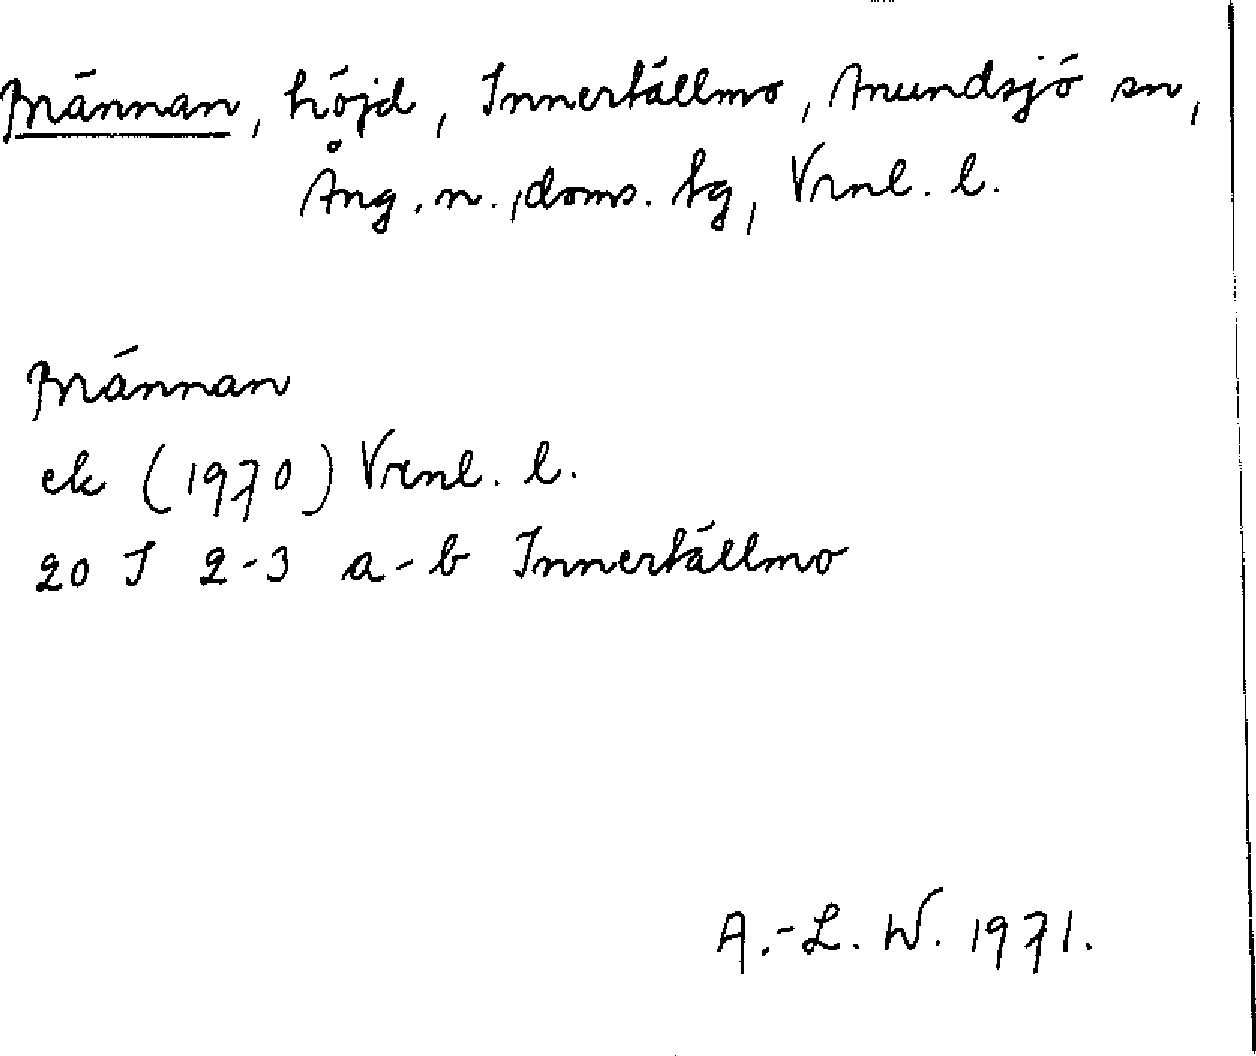 Brännan, höjd, Innertällmo, Anundsjö sn,
Ång. n. doms. tg, Vrnl. l.
Brännan
ek (1970) Vrnl. l.
20 J 2-3 a-b Innertällmo
A.-L. W. 1971.